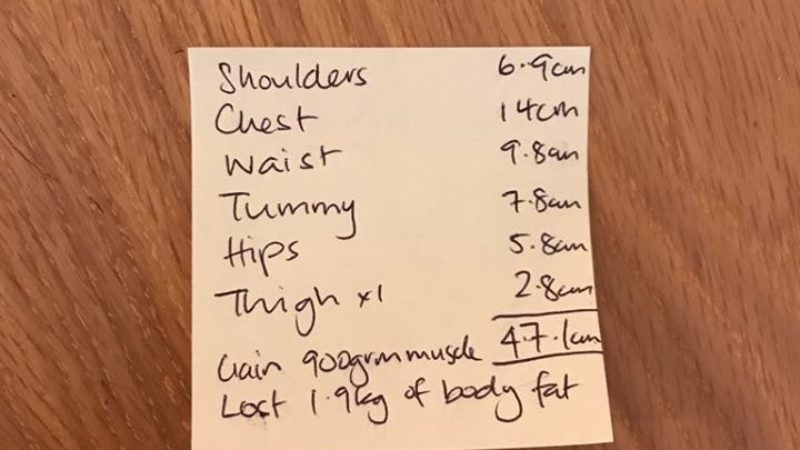 Shoulders 6.9cm
Chest 14cm
Waist 9.8cm
Tummy 7.8cm
Hips 5.8cm
Thigh x1 2.8cm
Gain 900grm muscle 47.1cm
Lost 1.9kg of body fat